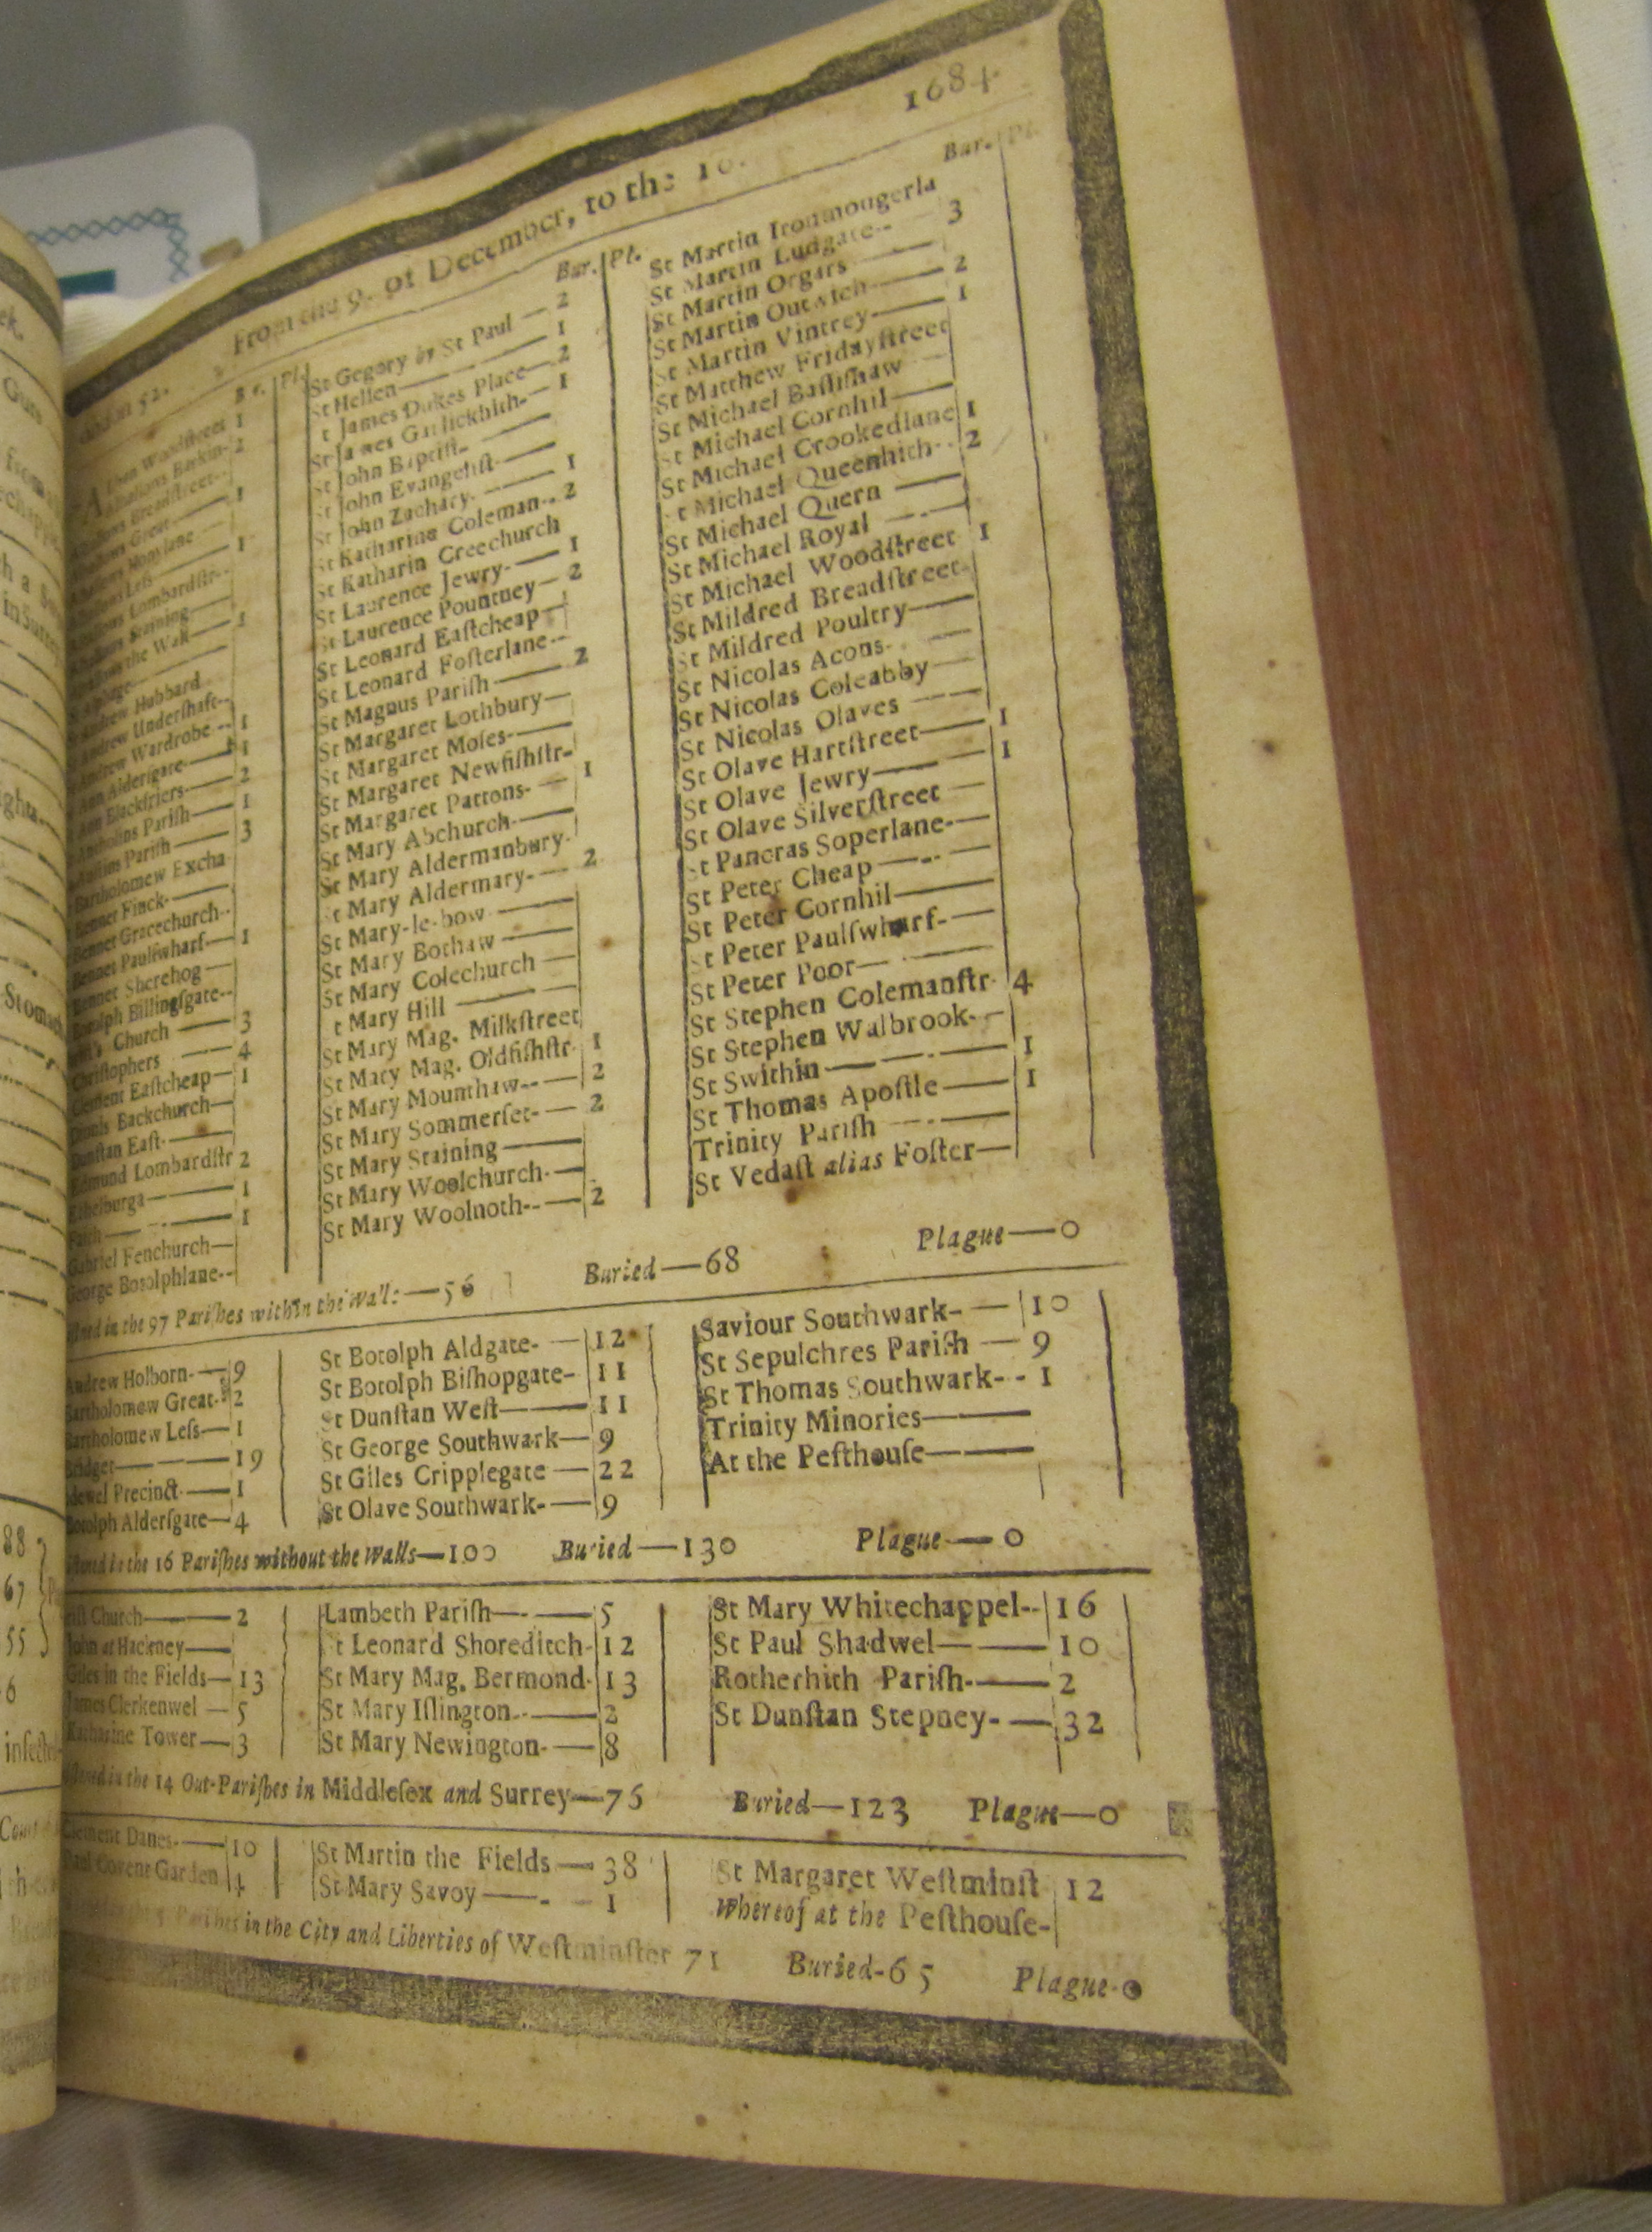 From the 9. of December, to the 16. 1684
Bur. Pl.
Woodstreet 1
Barkin- 2
Breadstreet--
Great 1
Honylane
Less 1
Lombardstr--
Staining
the Wall 1
Hubbard
Andrew Undershaft--
Andrew Wardrobe -- 1
Ann Aldersgate 1
Ann Blackfriers 2
Antholins Parish 1
Austins Parish 3
Bartholomew Excha
Bennet Finck-
Bennet Gracechurch--
Bennet Paulswharf 1
Bennet Sherehog
Botolph Billingsgate--
Church 3
Christophers 4
Clement Eastcheap 1
Dionis Backchurch
Dunstan East-
Edmund Lombardstr 2
Ethelburga 1
Faith 1
Gabriel Fenchurch
George Botolphlane--
Bur. Pl.
St Gegory by St Paul — 2
St Hellen 1
St James Dukes Place 2
St James Garlickhith- 1
St John Baptist-
St John Evangelist-
St John Zachary- 1
St Katharine Coleman-- 2
St Katharin Creechurch
St Laurence Jewry- 1
St Laurence Pountney 2
St Leonard Eastcheap
St Leonard Fosterlane--
St Magnus Parish 2
St Margaret Lothbury
St Margaret Moses-
St Margaret Newfishstr-
St Margaret Pattons- 1
St Mary Abchurch-
St Mary Aldermanbury-
St Mary Aldermary- 2
St Mary-le-bow
St Mary Bothaw
St Mary Colechurch
St Mary Hill
St Mary Mag. Milkstreet
St Mary Mag. Oldfishstr 1
St Mary Mounthaw-- 2
St Mary Sommerset- 2
St Mary Staining
St Mary Woolchurch-
St Mary Woolnoth-- 2
Bur. Pl.
St Martin Ironmougerla
St Martin Ludgate-- 3
St Martin Orgars
St Martin Outwich 2
St Martin Vintrey 1
St Matthew Fridayſtreet
St Michael Baſſiſhaw
St Michael Cornhil
St Michael Crookedlane 1
St Michael Queenhith 2
St Michael Quern
St Michael Royal
St Michael Woodſtreet 1
St Mildred Breadſtreet
St Mildred Poultry
St Nicolas Acons-
St Nicolas Coleabby
St Nicolas Olaves
St Olave Hartſtreet 1
St Olave Jewry 1
St Olave Silverſtreet
St Pancras Soperlane-
St Peter Cheap
St Peter Cornhil
St Peter Paulſwharf-
St Peter Poor
St Stephen Colemanſtr 4
St Stephen Walbrook-
St Swithin 1
St Thomas Apoſtle 1
Trinity Pariſh
St Vedaſt alias Foſter
in the 97 Pariſhes within the Walls — 56 Buried — 68 Plague — 0
Andrew Holborn- 9
Bartholomew Great- 2
Bartholomew Leſs 1
Bridget 19
Precinct 1
Botolph Alderſgate 4
St Botolph Aldgate- 12
St Botolph Biſhopgate- 11
St Dunſtan Weſt 11
St George Southwark 9
St Giles Cripplegate 22
St Olave Southwark- 9
Saviour Southwark- 10
St Sepulchres Pariſh 9
St Thomas Southwark- - 1
Trinity Minories
At the Peſthouſe
in the 16 Pariſhes without the Walls — 100 Buried — 130 Plague — 0
Church 2
John at Hackney
Giles in the Fields 13
James Clerkenwel 5
Katharine Tower 3
Lambeth Pariſh 5
St Leonard Shoreditch 12
St Mary Mag. Bermond 13
St Mary Iſlington-- 2
St Mary Newington- 8
St Mary Whitechappel-- 16
St Paul Shadwel 10
Rotherhith Pariſh- 2
St Dunſtan Stepney- 32
in the 14 Out-Pariſhes in Middleſex and Surrey — 76 Buried — 123 Plague — 0
Clement Danes- 10
Paul Covent Garden 4
St Martin the Fields 38
St Mary Savoy 1
St Margaret Weſtminſt 12
Whereof at the Peſthouſe-
in the City and Liberties of Weſtminſter 71 Buried-65 Plague-0